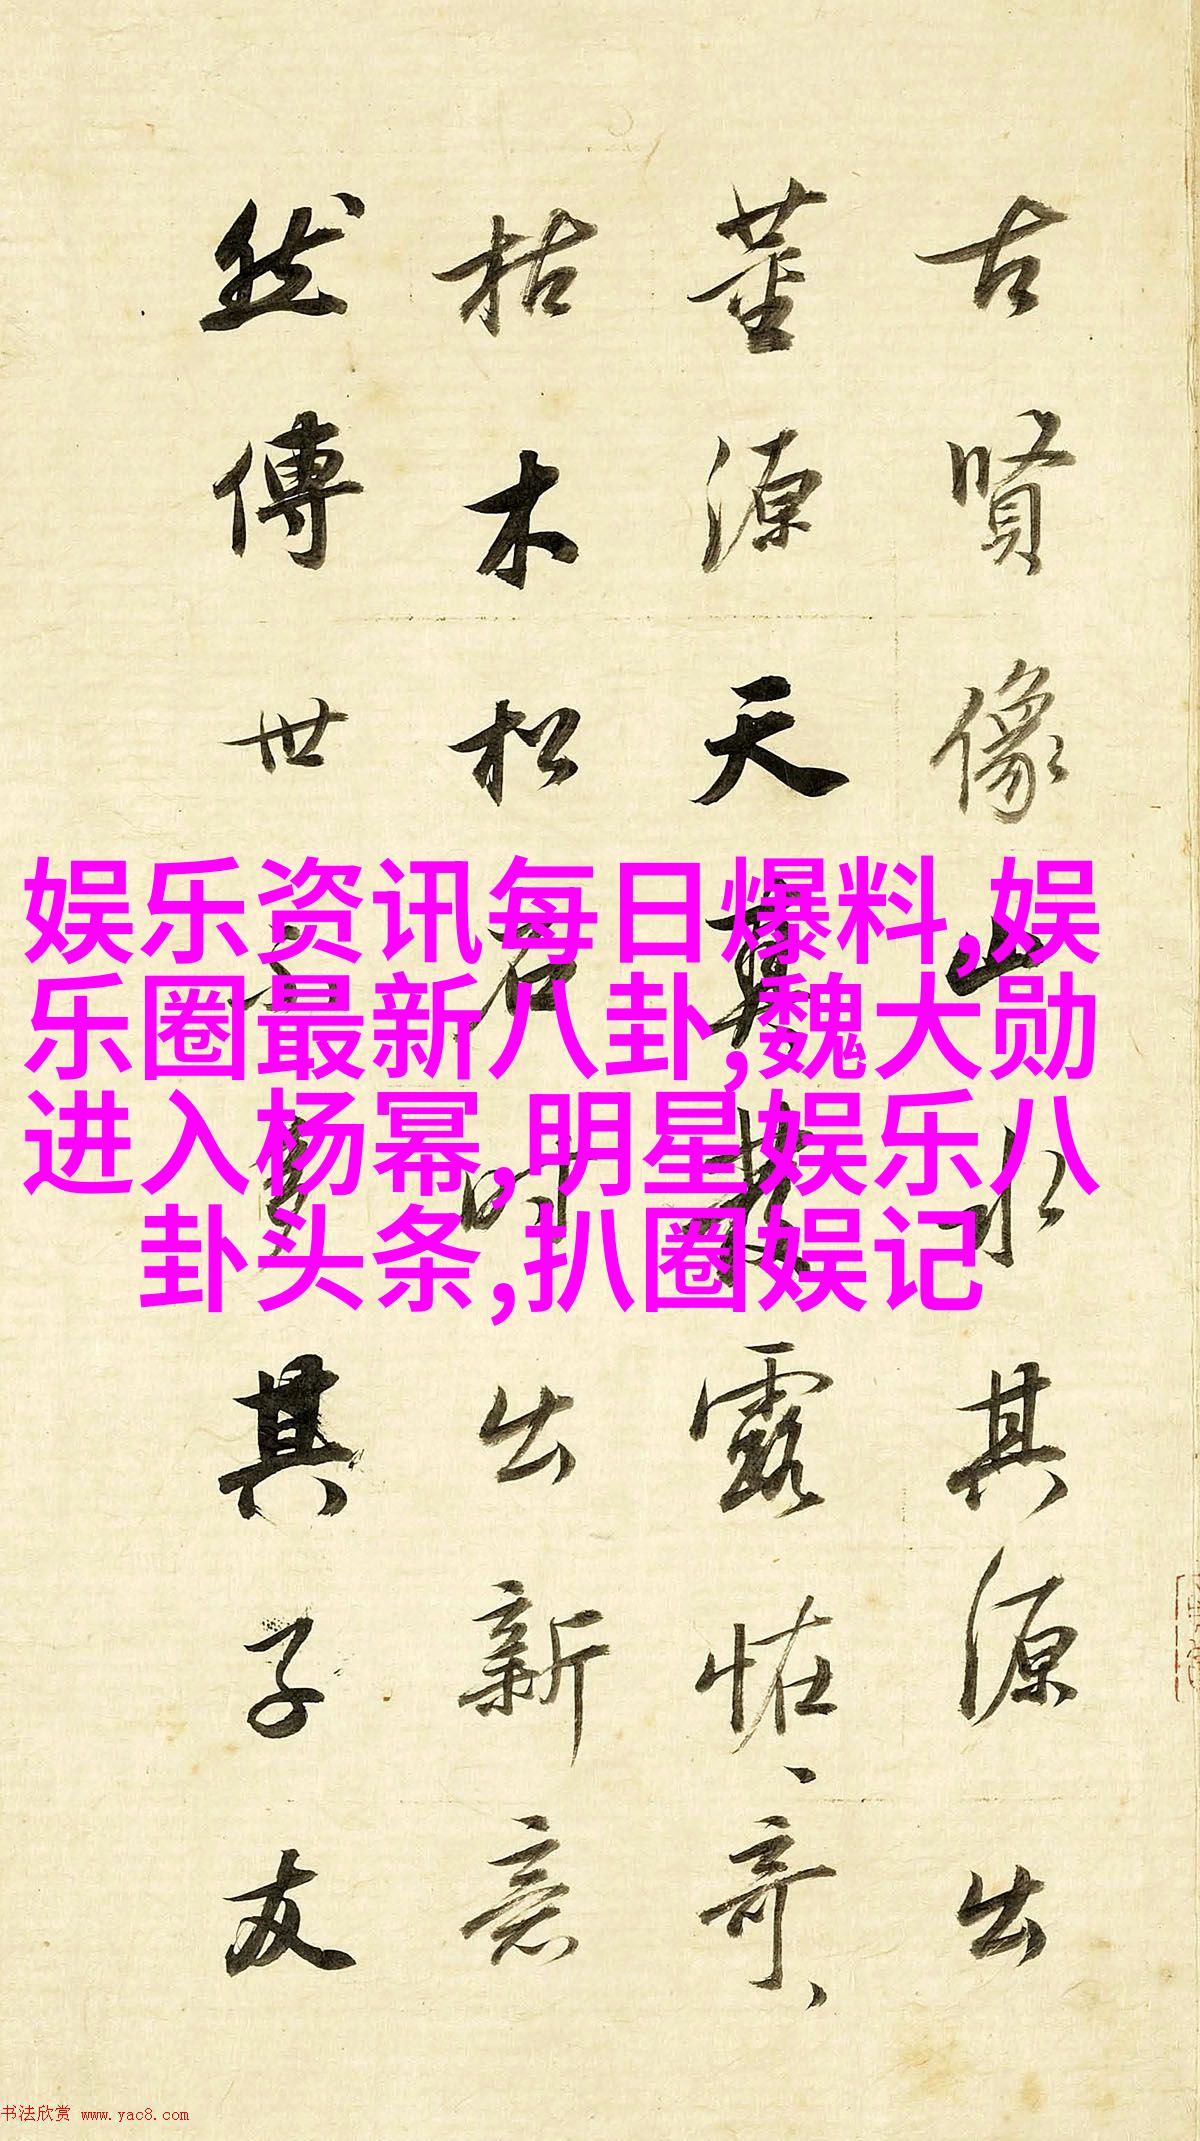 古賢像山水其源出
董源天真發露恠、奇、
枯木松石時出新意
然傳世不多其子友
娱乐资讯每日爆料,娱
乐圈最新八卦,魏大勋
进入杨幂,明星娱乐八
卦头条,扒圈娱记
书法欣赏 www.yac8.com